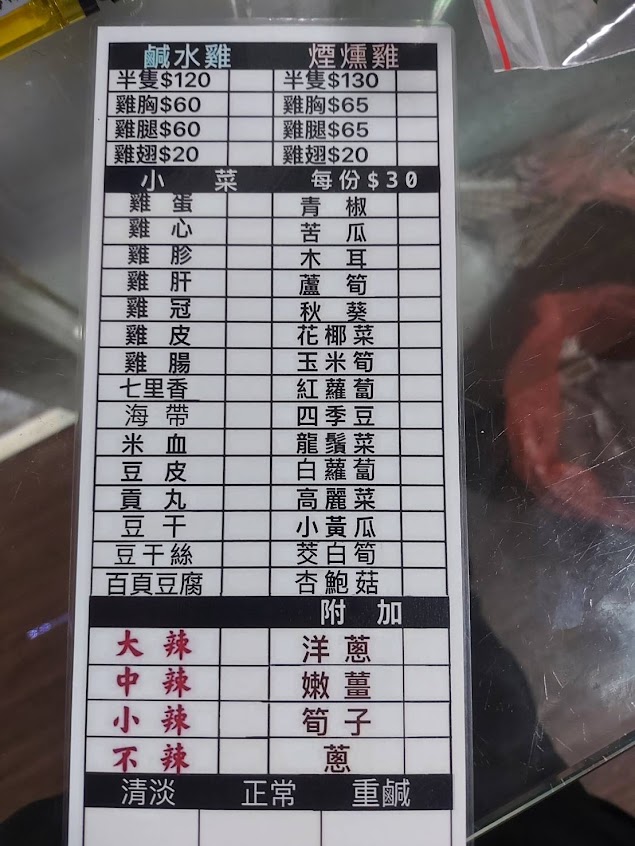 鹹水雞 煙燻雞
半隻$120 半隻$130
雞胸$60 雞胸$65
雞腿$60 雞腿$65
雞翅$20 雞翅$20
小菜 每份$30
雞蛋 青椒
雞心 苦瓜
雞胗 木耳
雞肝 蘆筍
雞冠 秋葵
雞皮 花椰菜
雞腸 玉米筍
七里香 紅蘿蔔
海帶 四季豆
米血 龍鬚菜
豆皮 白蘿蔔
貢丸 高麗菜
豆干 小黃瓜
豆干絲 茭白筍
百頁豆腐 杏鮑菇
附加
大辣 洋蔥
中辣 嫩薑
小辣 筍子
不辣 蔥
清淡 正常 重鹹